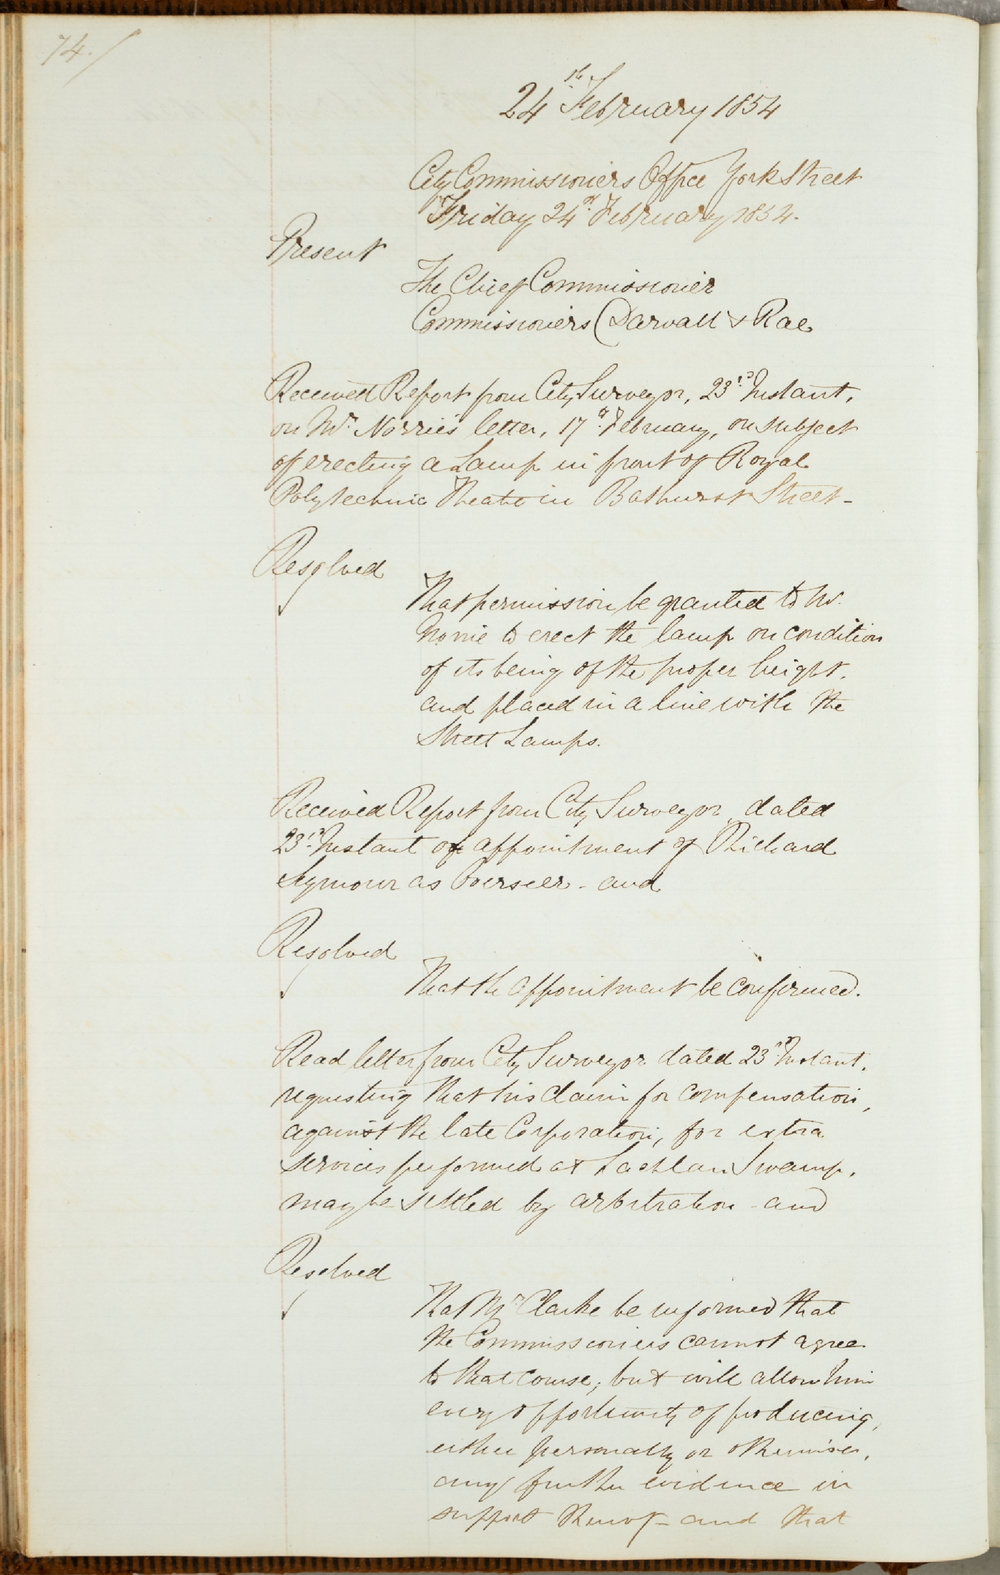 74.
24th February 1854
City Commissioners Office York Street
Friday 24th February 1854.
Present
The Chief Commissioner
Commissioners Darvall & Rae
Received Report from City Surveyor, 23rd Instant,
on Mr. Norrie's letter, 17th February, on subject
of erecting a Lamp in front of Royal
Polytechnic Theatre in Bathurst Street -
Resolved
That permission be granted to Mr.
Norrie to erect the lamp on condition
of its being of the proper height,
and placed in a line with the
Street Lamps.
Received Report from City Surveyor, dated
23rd Instant of appointment of Richard
Seymour as Overseer - and
Resolved
That the appointment be confirmed.
Read letter from City Surveyor dated 23rd Instant,
requesting that his claim for compensation,
against the late Corporation, for extra
services performed at Lachlan Swamp,
may be settled by arbitration - and
Resolved
That Mr Clarke be informed that
the Commissioners cannot agree
to that course, but will allow him
every opportunity of producing,
either personally or otherwise,
any further evidence in
support thereof - and that